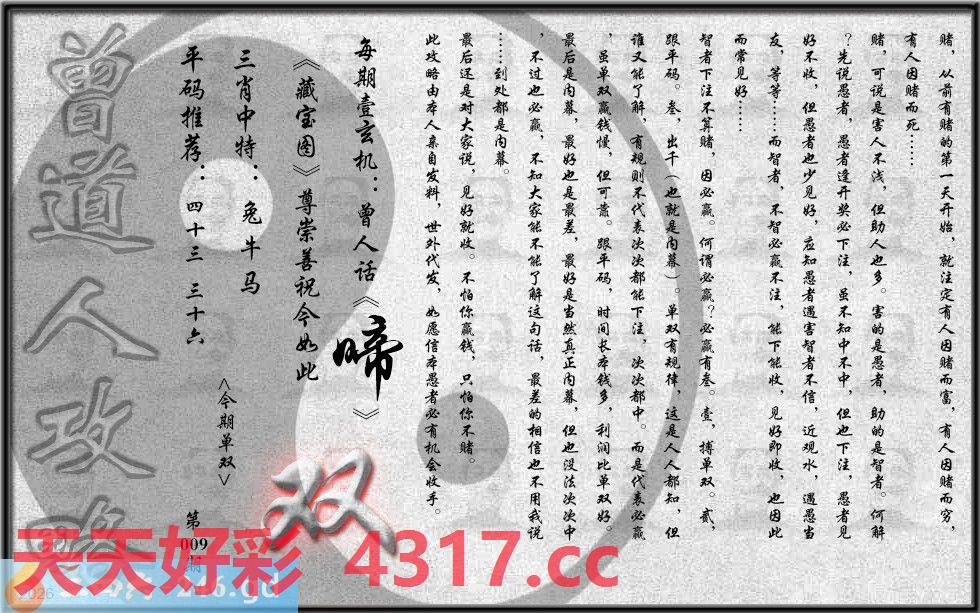 赌，从前有赌的第一天开始，就注定有人因赌而富，有人因赌而穷，
有人因赌而死……
赌，可说是害人不浅，但助人也多。害的是愚者，助的是智者。何解
？先说愚者，愚者逢开奖必下注，虽不知中不中，但也下注，愚者见
好不收，但愚者也少见好，应知愚者遇害智者不信，近观水，遇愚当
友，等等……而智者，不智必赢不注，能下能收，见好即收，也因此
而常见好……
智者下注不算赌，因必赢。何谓必赢？必赢有叁。壹，搏单双。贰，
跟平码。叁，出千（也就是内幕）。单双有规律，这是人人都知，但
谁又能了解，有规则不代表次次都能下注，次次都中。而是代表必赢
，虽单双赢钱慢，但可靠。跟平码，时间长本钱多，利润比单双好。
最后是内幕，最好也是最差，最好是当然真正内幕，但也没法次次中
，不过也必赢，不知大家能不能了解这句话，最差的相信也不用我说
……到处都是内幕。
最后还是对大家说，见好就收。不怕你赢钱，只怕你不赌。
此攻略由本人亲自发料，世外代发，如愿信本愚者必有机会收手。
每期壹玄机：曾人话《啼》
《藏宝图》尊崇善祝今如此
三肖中特：兔牛马
平码推荐：四十三 三十六
<今期单双>
双
第
009
期
曾道人攻略
天天好彩 4317.cc